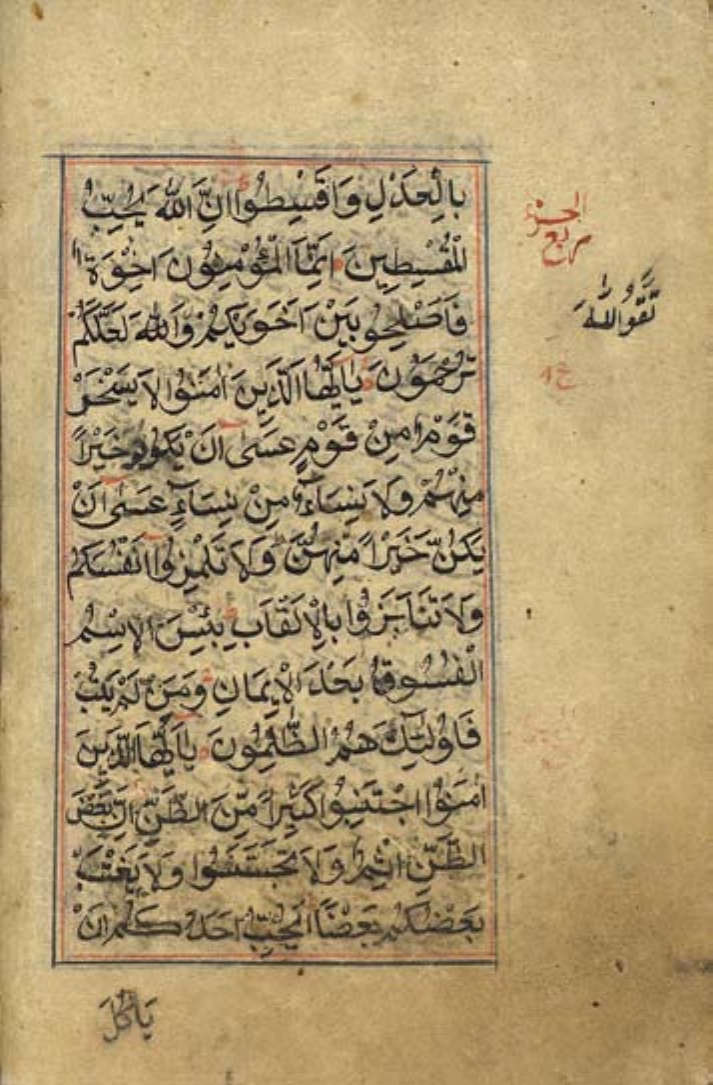 بِالْعَدْلِ وَاَقْسِطُوا اِنَّ اللّٰهَ يُحِبُّ
الْمُقْسِطِينَ اِنَّمَا الْمُؤْمِنُونَ اِخْوَةٌ
فَاَصْلِحُو بَيْنَ اَخَوَيْكُمْ وَاللّٰهَ لَعَلَّكُمْ
تُرْحَمُونَ يَا اَيُّهَا الَّذِينَ اٰمَنُوا لَا يَسْخَرْ
قَوْمٌ مِنْ قَوْمٍ عَسٰى اَنْ يَكُونُو خَيْرًا
مِنْهُمْ وَلَا نِسَاءٌ مِنْ نِسَاءٍ عَسٰى اَنْ
يَكُنَّ خَيْرًا مِنْهُنَّ وَلَا تَلْمِزُوا اَنْفُسَكُمْ
وَلَا تَنَابَزُوا بِالْاَلْقَابِ بِئْسَ الِاسْمُ
الْفُسُوقُ بَعْدَ الْاِيمَانِ وَمَنْ لَمْ يَتُبْ
فَاُولٰئِكَ هُمُ الظَّالِمُونَ يَا اَيُّهَا الَّذِينَ
اٰمَنُوا اجْتَنِبُوا كَثِيرًا مِنَ الظَّنِّ اِنَّ بَعْضَ
الظَّنِّ اِثْمٌ وَلَا تَجَسَّسُوا وَلَا يَغْتَبْ
بَعْضُكُمْ بَعْضًا اَيُحِبُّ اَحَدُكُمْ اَنْ
يَأْكُلَ
الحزب
ربع
تَّقُوا اللّٰهَ